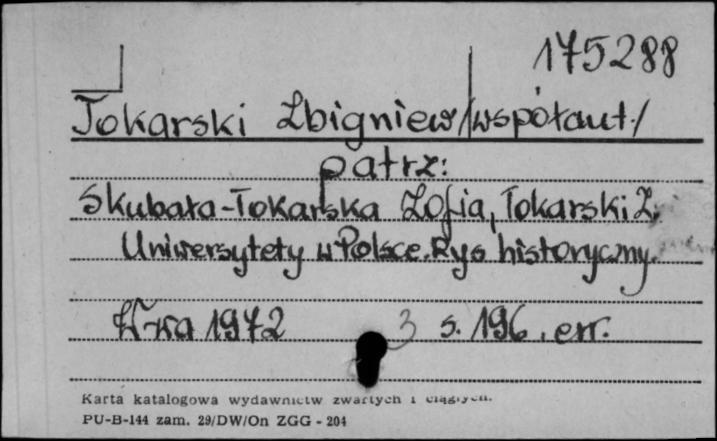 175288
Tokarski Zbigniew /współaut./
patrz:
Skubała-Tokarska Zofia, Tokarski Z.
Uniwersytety w Polsce. Rys historyczny.
W-wa 1972 s. 196, err.
Karta katalogowa wydawnictw zwartych i ciągłych.
PU-B-144 zam. 29/DW/On ZGG - 204